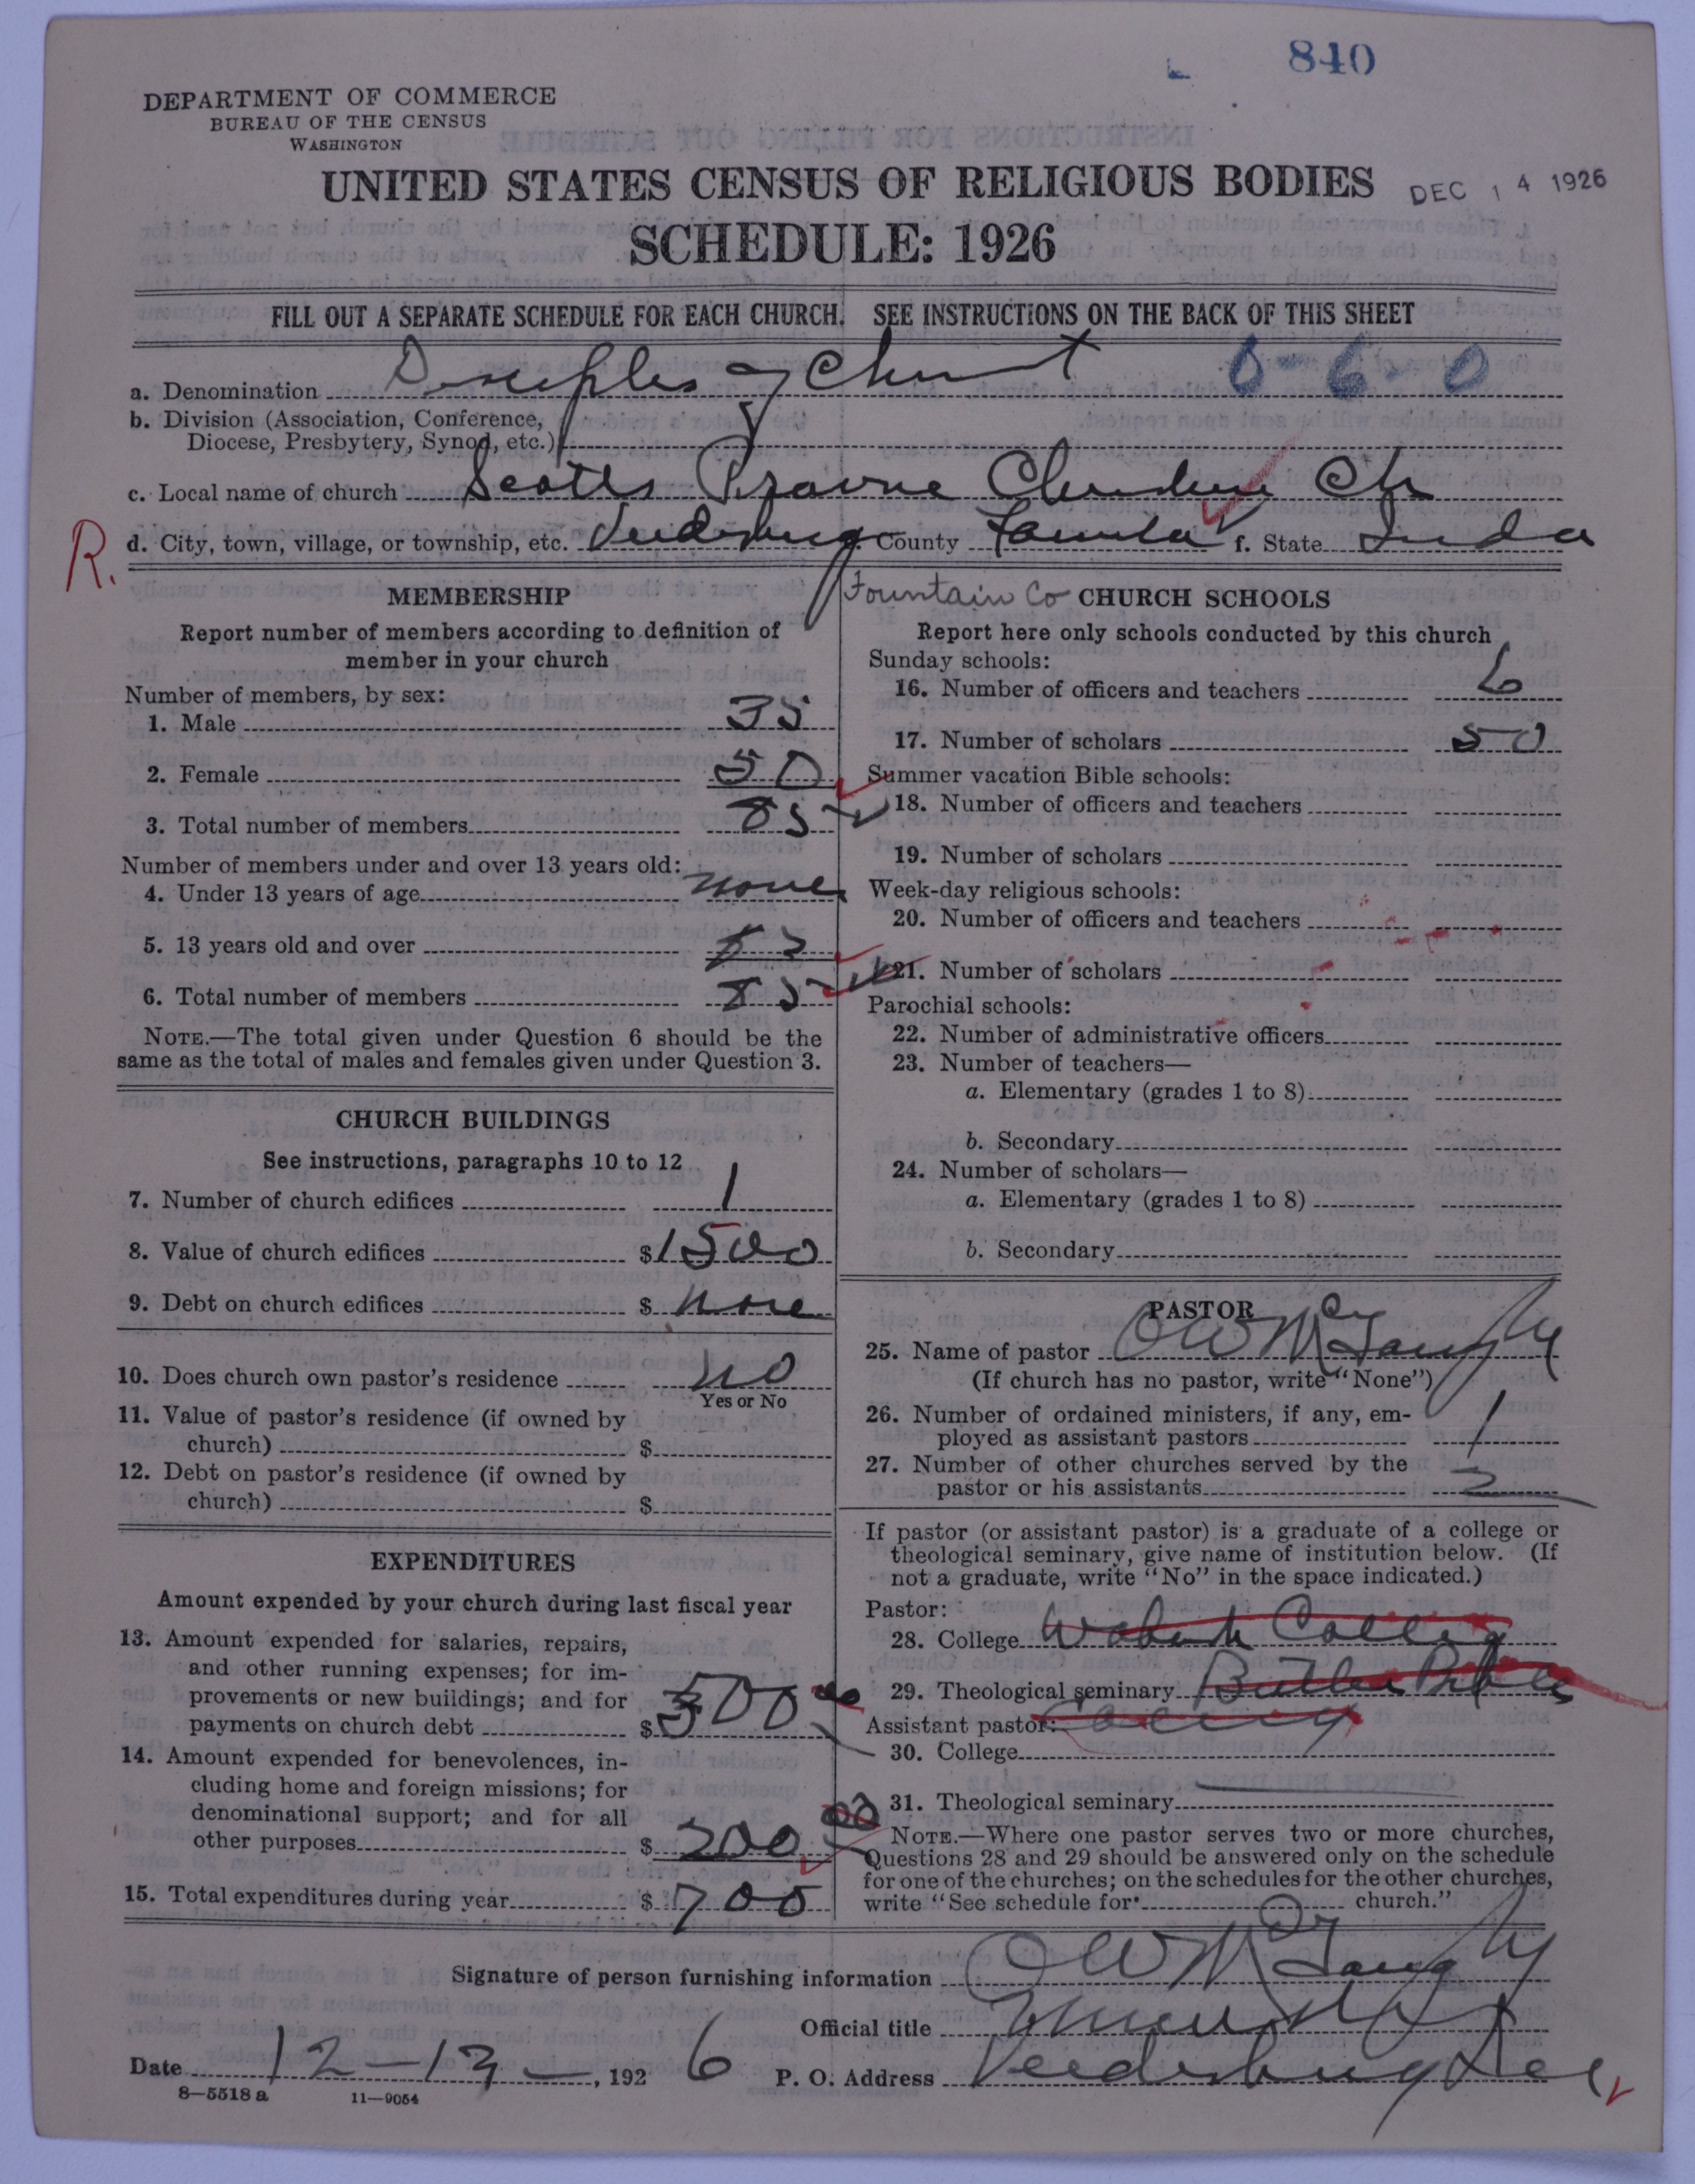 840
DEPARTMENT OF COMMERCE
BUREAU OF THE CENSUS
WASHINGTON
UNITED STATES CENSUS OF RELIGIOUS BODIES
DEC 14 1926
SCHEDULE: 1926
FILL OUT A SEPARATE SCHEDULE FOR EACH CHURCH. SEE INSTRUCTIONS ON THE BACK OF THIS SHEET
a. Denomination Disciples of Christ 0-6-0
b. Division (Association, Conference,
Diocese, Presbytery, Synod, etc.)
c. Local name of church Scotts Prairie Christian Ch
R.
d. City, town, village, or township, etc. Veedersburg County f. State Inda
Fountain Co
MEMBERSHIP
Report number of members according to definition of
member in your church
Number of members, by sex:
1. Male 35
2. Female 50
3. Total number of members 85
Number of members under and over 13 years old:
4. Under 13 years of age none
5. 13 years old and over
6. Total number of members 85
NOTE.—The total given under Question 6 should be the
same as the total of males and females given under Question 3.
CHURCH BUILDINGS
See instructions, paragraphs 10 to 12
7. Number of church edifices 1
8. Value of church edifices $1500
9. Debt on church edifices $ none
10. Does church own pastor's residence no
Yes or No
11. Value of pastor's residence (if owned by
church) $
12. Debt on pastor's residence (if owned by
church) $
EXPENDITURES
Amount expended by your church during last fiscal year
13. Amount expended for salaries, repairs,
and other running expenses; for im-
provements or new buildings; and for
payments on church debt $ 500 00
14. Amount expended for benevolences, in-
cluding home and foreign missions; for
denominational support; and for all
other purposes $ 200 00
15. Total expenditures during year $ 700
CHURCH SCHOOLS
Report here only schools conducted by this church
Sunday schools:
16. Number of officers and teachers 6
17. Number of scholars 50
Summer vacation Bible schools:
18. Number of officers and teachers
19. Number of scholars
Week-day religious schools:
20. Number of officers and teachers
21. Number of scholars
Parochial schools:
22. Number of administrative officers
23. Number of teachers—
a. Elementary (grades 1 to 8)
b. Secondary
24. Number of scholars—
a. Elementary (grades 1 to 8)
b. Secondary
PASTOR
25. Name of pastor O W McGaughey
(If church has no pastor, write "None")
26. Number of ordained ministers, if any, em-
ployed as assistant pastors 1
27. Number of other churches served by the
pastor or his assistants 2
If pastor (or assistant pastor) is a graduate of a college or
theological seminary, give name of institution below. (If
not a graduate, write "No" in the space indicated.)
Pastor:
28. College Wabash College
29. Theological seminary Butler Bible
Assistant pastor: College
30. College
31. Theological seminary
NOTE.—Where one pastor serves two or more churches,
Questions 28 and 29 should be answered only on the schedule
for one of the churches; on the schedules for the other churches,
write "See schedule for church."
Signature of person furnishing information O W McGaughey
Official title Minister
Date 12-13-, 192 6 P. O. Address Veedersburg
8-5518 a 11-9054